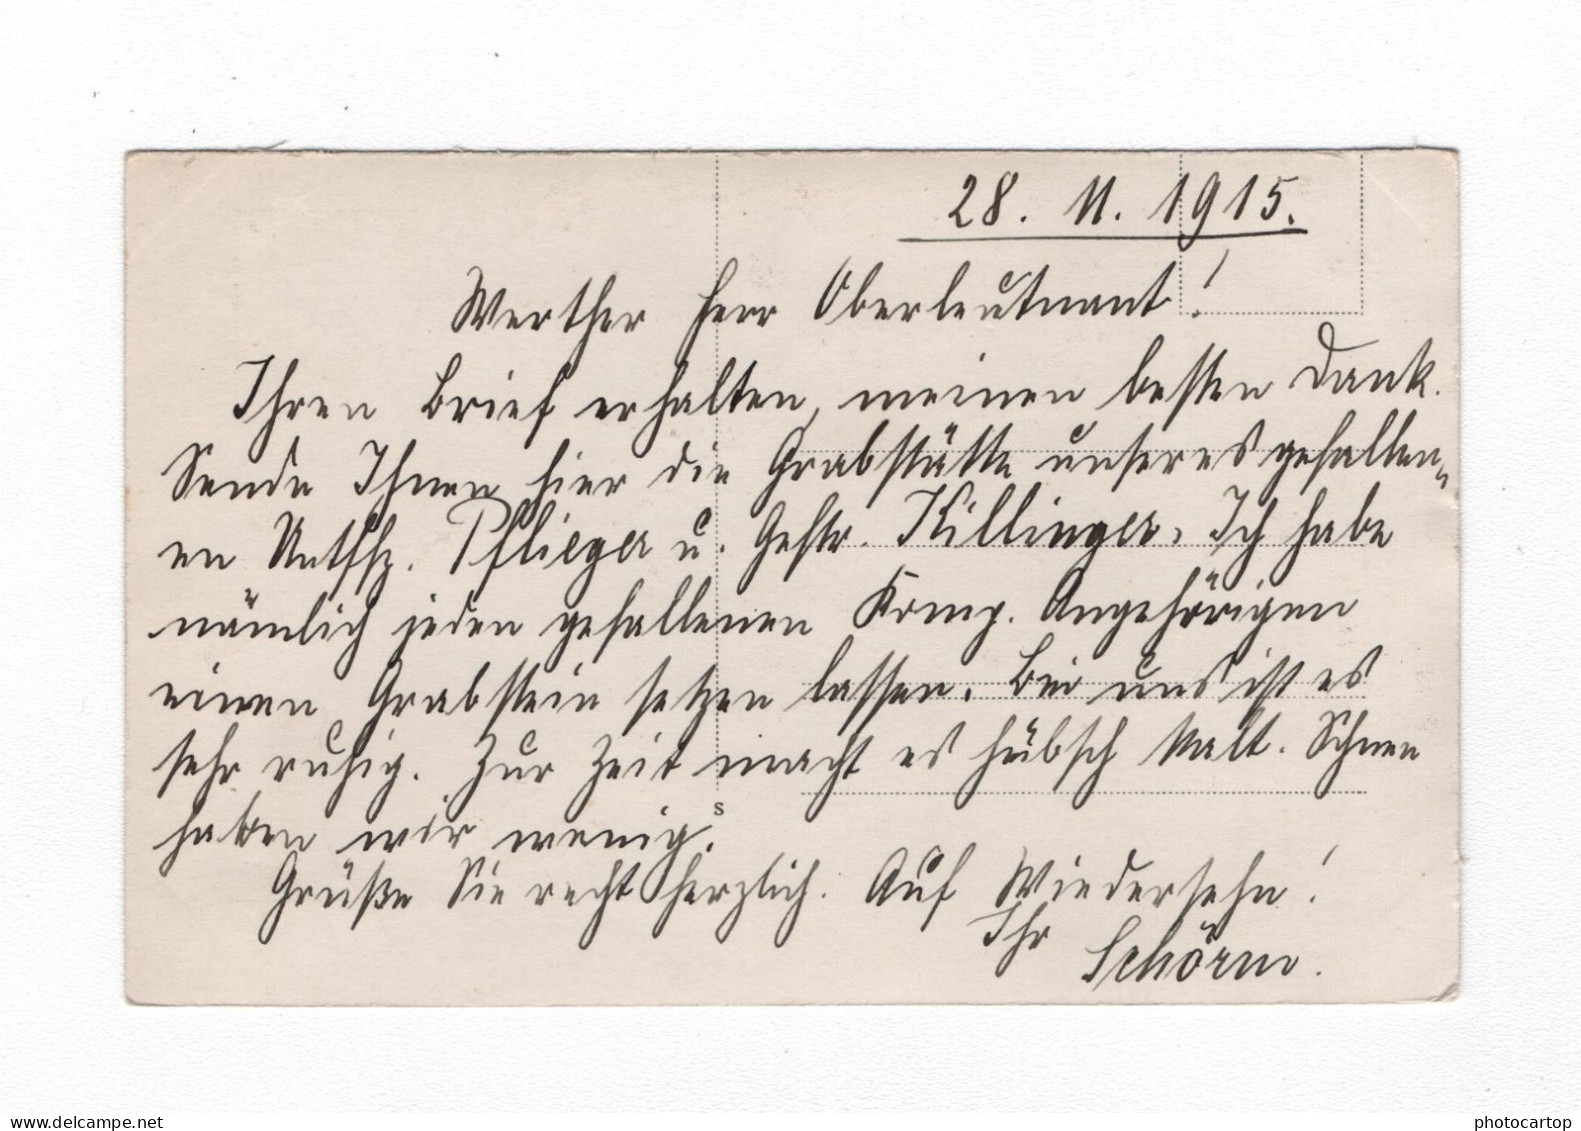 28. 11. 1915.
Werther Herr Oberleutnant!
Ihren Brief erhalten, meinen besten Dank.
Sende Ihnen hier die Grabstätte unseres gefallen-
en Untffz. Pflieger u. Gefr. Killinger. Ich habe
nämlich jeden gefallenen Komp. Angehörigen
einen Grabstein setzen lassen. Bei uns ist es
sehr ruhig. Zur Zeit macht es hübsch kalt. Schnee
haben wir wenig.
s
Grüße Sie recht herzlich. Auf Wiedersehn!
Ihr
delcampe.net
photocartop